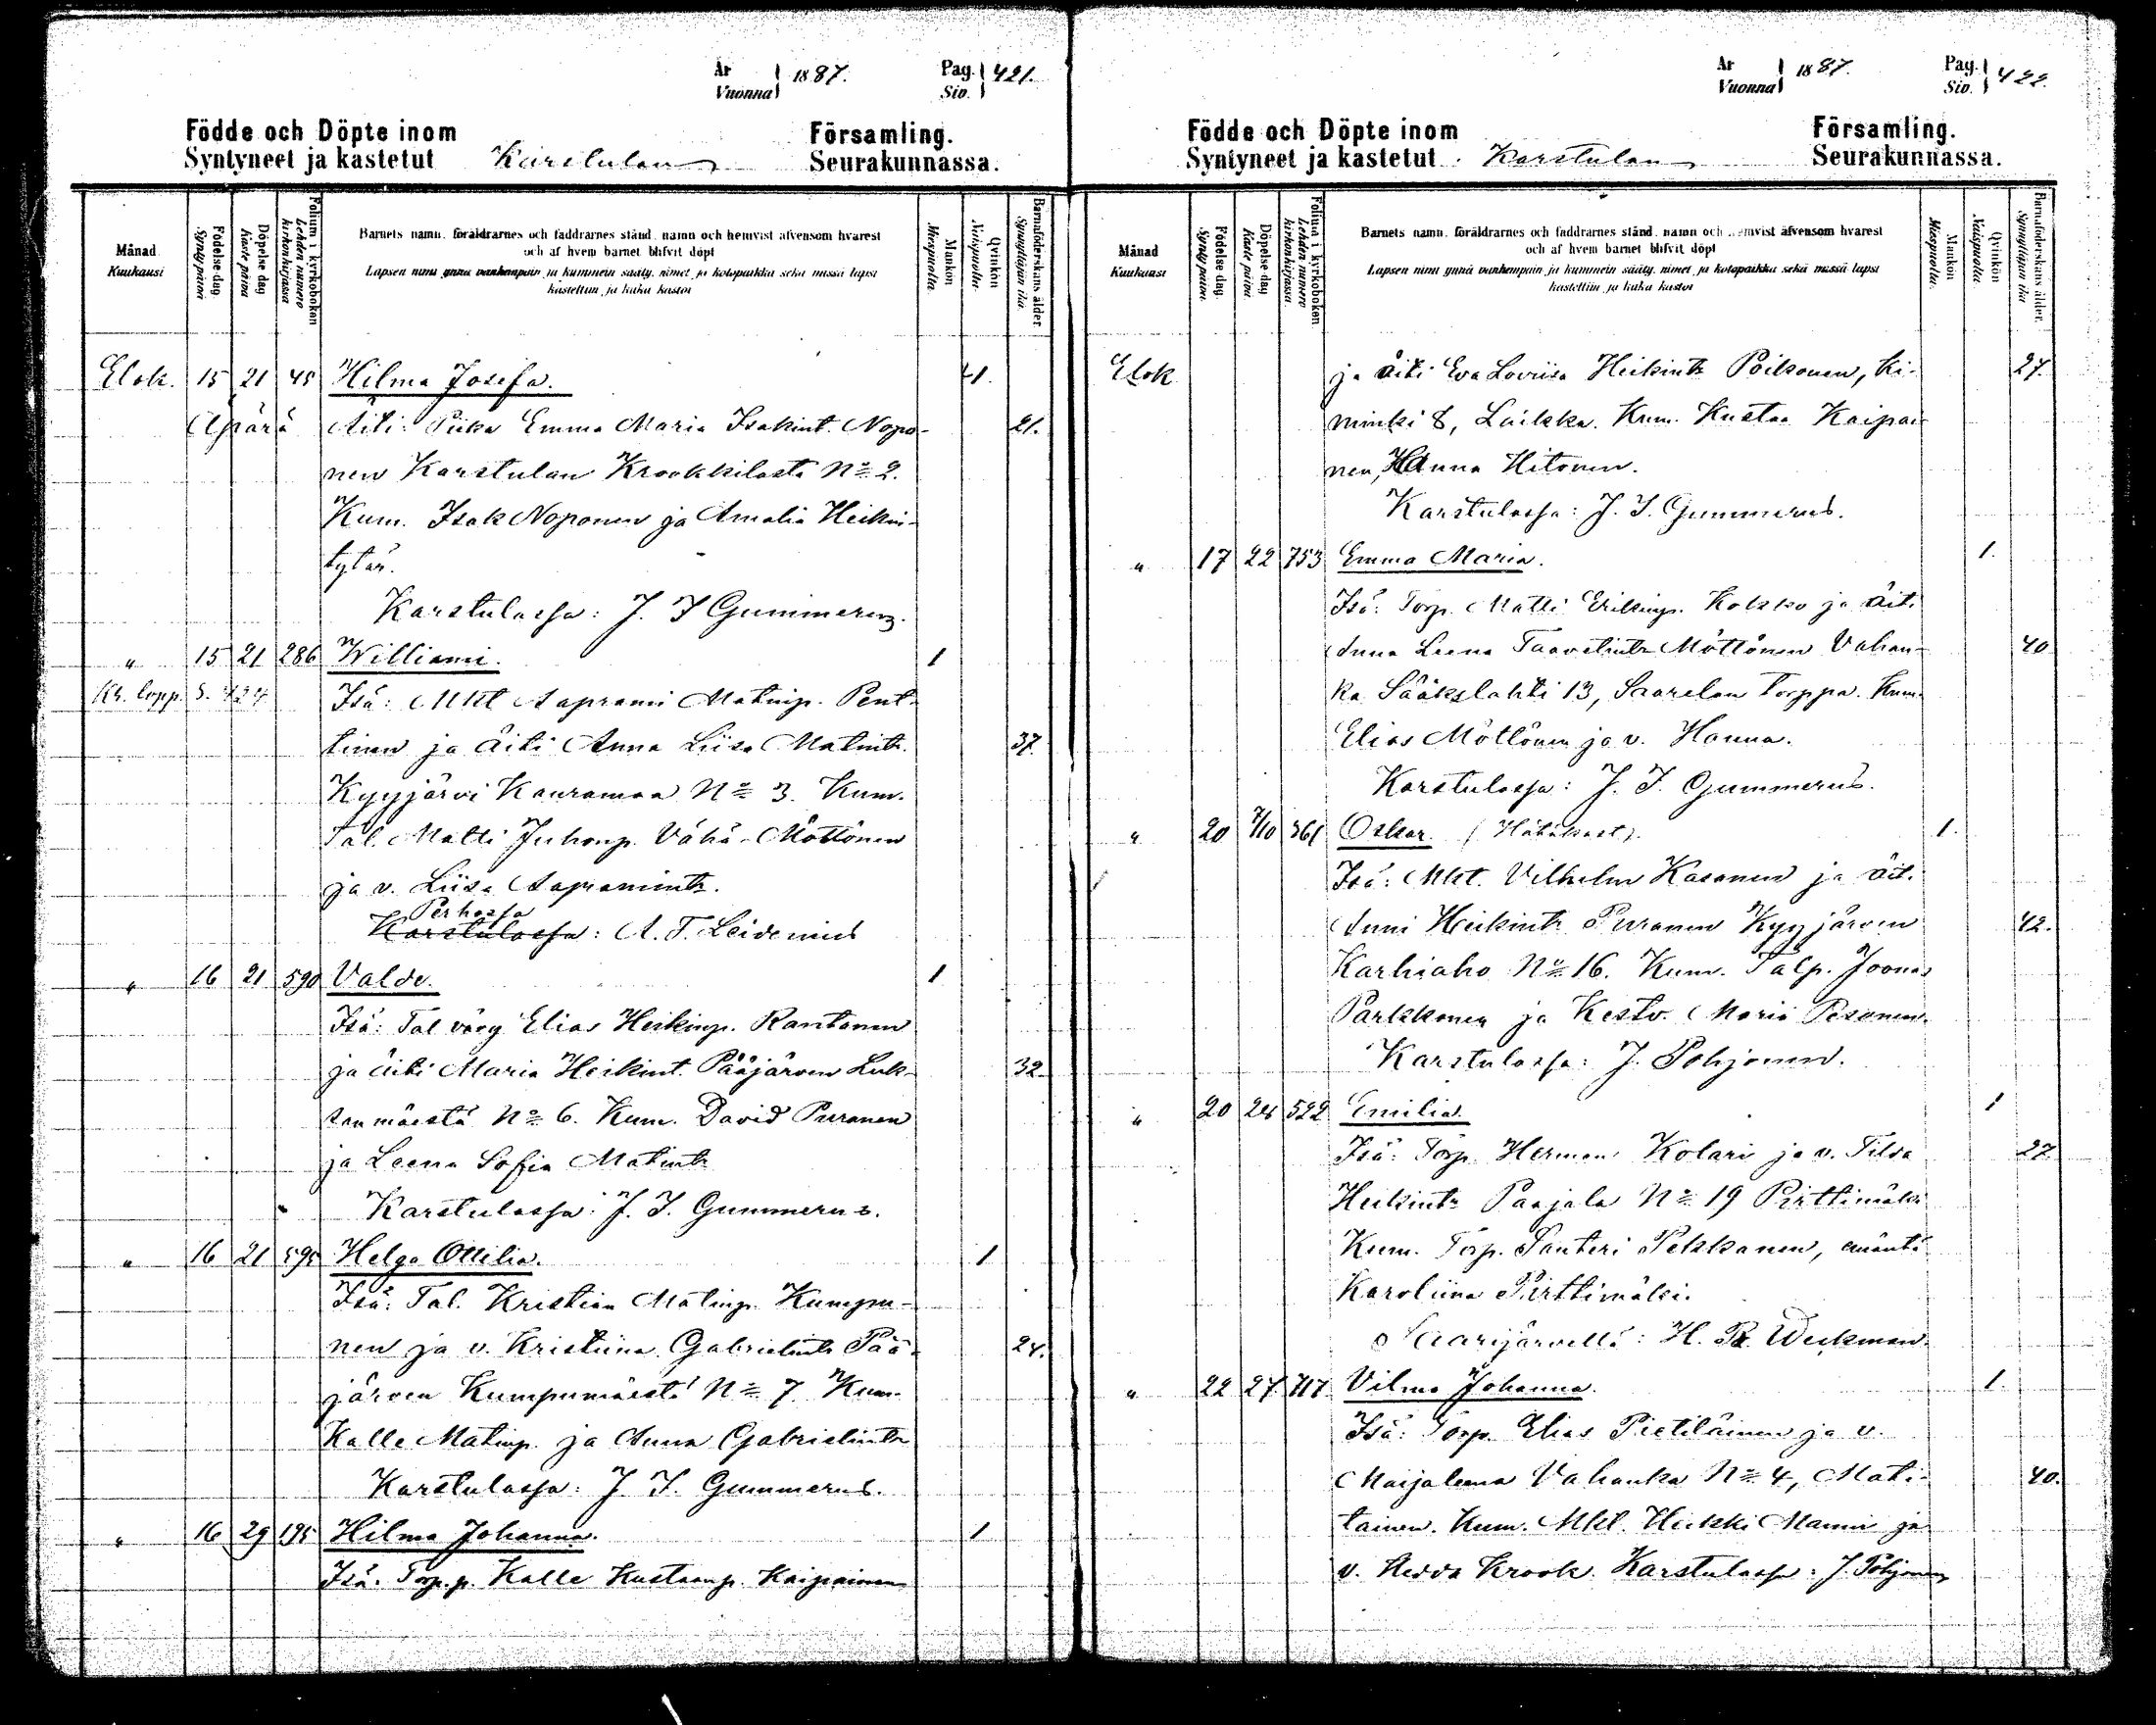 År Vuonna 1887. Pag. Siv. 421.
Födde och Döpte inom Församling.
Syntyneet ja kastetut Karstulan Seurakunnassa.
Månad Kuukausi
Födelse dag Synty päivä
Döpelse dag Kaste päivä
Folium i kyrkoboken Lehden numero kirkonkirjassa
Barnets namn, föräldrarnes och faddrarnes stånd, namn och hemvist äfvensom hvarest
och af hvem barnet blifvit döpt
Lapsen nimi ynnä vanhempain ja kummein sääty, nimet ja kotopaikka sekä missä lapsi
kastettiin ja kuka kastoi
Mankön Miespuolta.
Qvinkön Naispuolta.
Barnaföderskans ålder Synnyttäjän ikä.
Elok. 15 21 45 Hilma Josefa. 1.
Äpärä Äiti: Piika Emma Maria Isakint. Nopo- 21.
nen Karstulan Krookkilasta No 2.
Kum. Isak Noponen ja Amalia Heikin-
tytär.
Karstulassa: J. I Gummerus.
" 15 21 286 Williami. 1
Isä: Mkt Aaprami Matinp. Pent-
tinen ja äiti Anna Liisa Matintr. 37.
Kyyjärvi Kauramaa No 3. Kum.
Tal. Matti Juhonp. Vähä-Möttönen
ja v. Liisa Aapramintr.
Perhossa
Karstulassa: A. F. Leidenius
" 16 21 590 Valde. 1
Isä: Tal vävy Elias Heikinp. Rantanen
ja äiti Maria Heikint. Pääjärven Luk- 32.
kanmäestä No 6. Kum. David Puranen
ja Leena Sofia Matintr
Karstulassa: J. I. Gummerus.
" 16 21 595 Helga Ottilia. 1
Isä: Tal. Kristian Matinp. Kumpu-
nen ja v. Kristiina Gabrielintr Pää- 24.
järven Kumpumäestä No 7. Kum.
Kalle Matinp. ja Anna Gabrielintr
Karstulassa: J. I. Gummerus.
" 16 29 195 Hilma Johanna. 1
Isä: Torp.p. Kalle Kustaanp. Kaipainen
År Vuonna 1887. Pag. Siv. 422.
Födde och Döpte inom Församling.
Syntyneet ja kastetut Karstulan Seurakunnassa.
Månad Kuukausi
Födelse dag Synty päivä
Döpelse dag Kaste päivä
Folium i kyrkoboken Lehden numero kirkonkirjassa
Barnets namn, föräldrarnes och faddrarnes stånd, namn och hemvist äfvensom hvarest
och af hvem barnet blifvit döpt
Lapsen nimi ynnä vanhempain ja kummein sääty, nimet ja kotopaikka sekä missä lapsi
kastettiin ja kuka kastoi
Mankön Miespuolta.
Qvinkön Naispuolta
Barnaföderskans ålder. Synnyttäjän ikä
Elok ja äiti Eva Loviisa Heikintr Poikonen, Ki- 27.
minki 8, Laikka. Kum. Kustaa Kaipai-
nen, Hanna Hitonen.
Karstulassa: J. I. Gummerus.
" 17 22 753 Emma Maria. 1.
Isä: Torp. Matti Erikinp. Kokko ja äiti
Anna Leena Taavetintr Möttönen Vahan- 40
ka Sääkslahti 13, Saarelan torppa. Kum.
Elias Möttönen ja v. Hanna.
Karstulassa: J. I. Gummerus.
" 20 7/10 361 Oskar. (Hätäkast). 1.
Isä: Mkt. Vilhelm Kasanen ja äit.
Anni Heikintr Puranen Kyyjärven 42.
Karhiaho No 16. Kum. Talp. Joonas
Parkkonen ja Kestv. Maria Pesonen.
Karstulassa: J. Pohjonen.
" 20 28 522 Emilia. 1
Isä: Torp. Herman Kolari ja v. Tilda 27
Heikintr Paajala No 19 Pirttimäki
Kum. Torp. Santeri Pekkanen, emäntä
Karoliina Pirttimäki.
Saarijärvellä: H. R. Weckman.
" 22 27 717 Vilma Johanna. 1.
Isä: Torp. Elias Pietiläinen ja v.
Maijaleena Vahanka No 4, Mati- 40.
tainen. Kum. Mkt. Heikki Manni ja
v. Hedda Krook. Karstulassa: J. Pohjonen